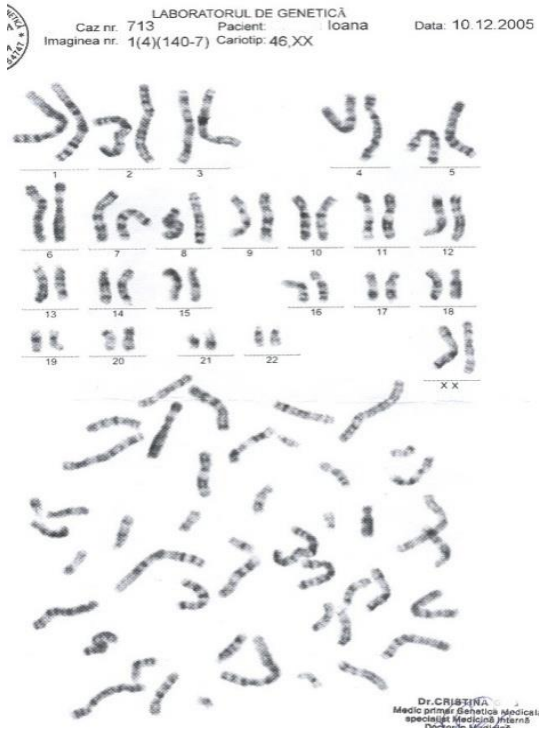 LABORATORUL DE GENETICĂ
Caz nr. 713 Pacient: Ioana Data: 10.12.2005
Imaginea nr. 1(4)(140-7) Cariotip: 46,XX
1 2 3 4 5
6 7 8 9 10 11 12
13 14 15 16 17 18
19 20 21 22 X X
Dr.CRISTINA
Medic primar Genetica Medicala
specialist Medicină Internă